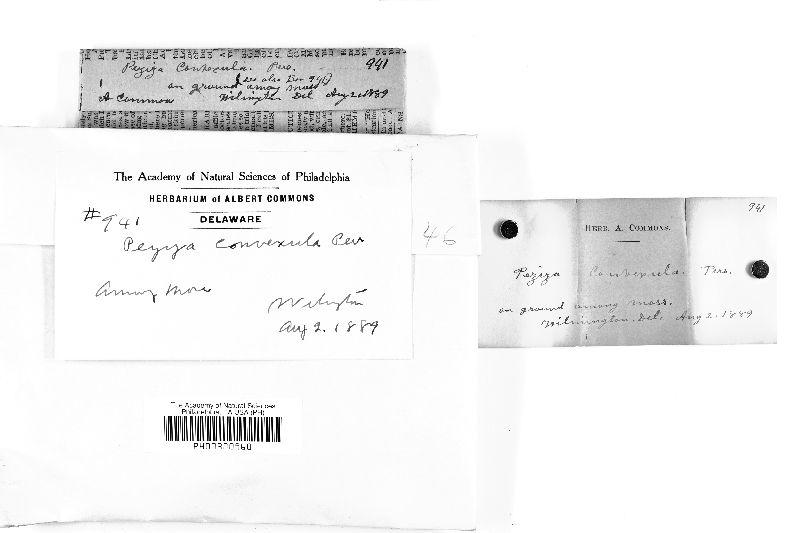 Peziza Convexula. Pers. 941
(See also Dec 941)
on ground among moss
A Commons Wilmington Del Aug 2 1889
The Academy of Natural Sciences of Philadelphia
HERBARIUM of ALBERT COMMONS
DELAWARE
#941
Peziza convexula Per
Among Moss
Wilmington
Aug 2. 1889
46
The Academy of Natural Sciences
Philadelphia, PA USA (PH)
941
HERB. A. COMMONS.
Peziza Convexula. Pers.
on ground among moss.
Wilmington. Del. Aug 2. 1889